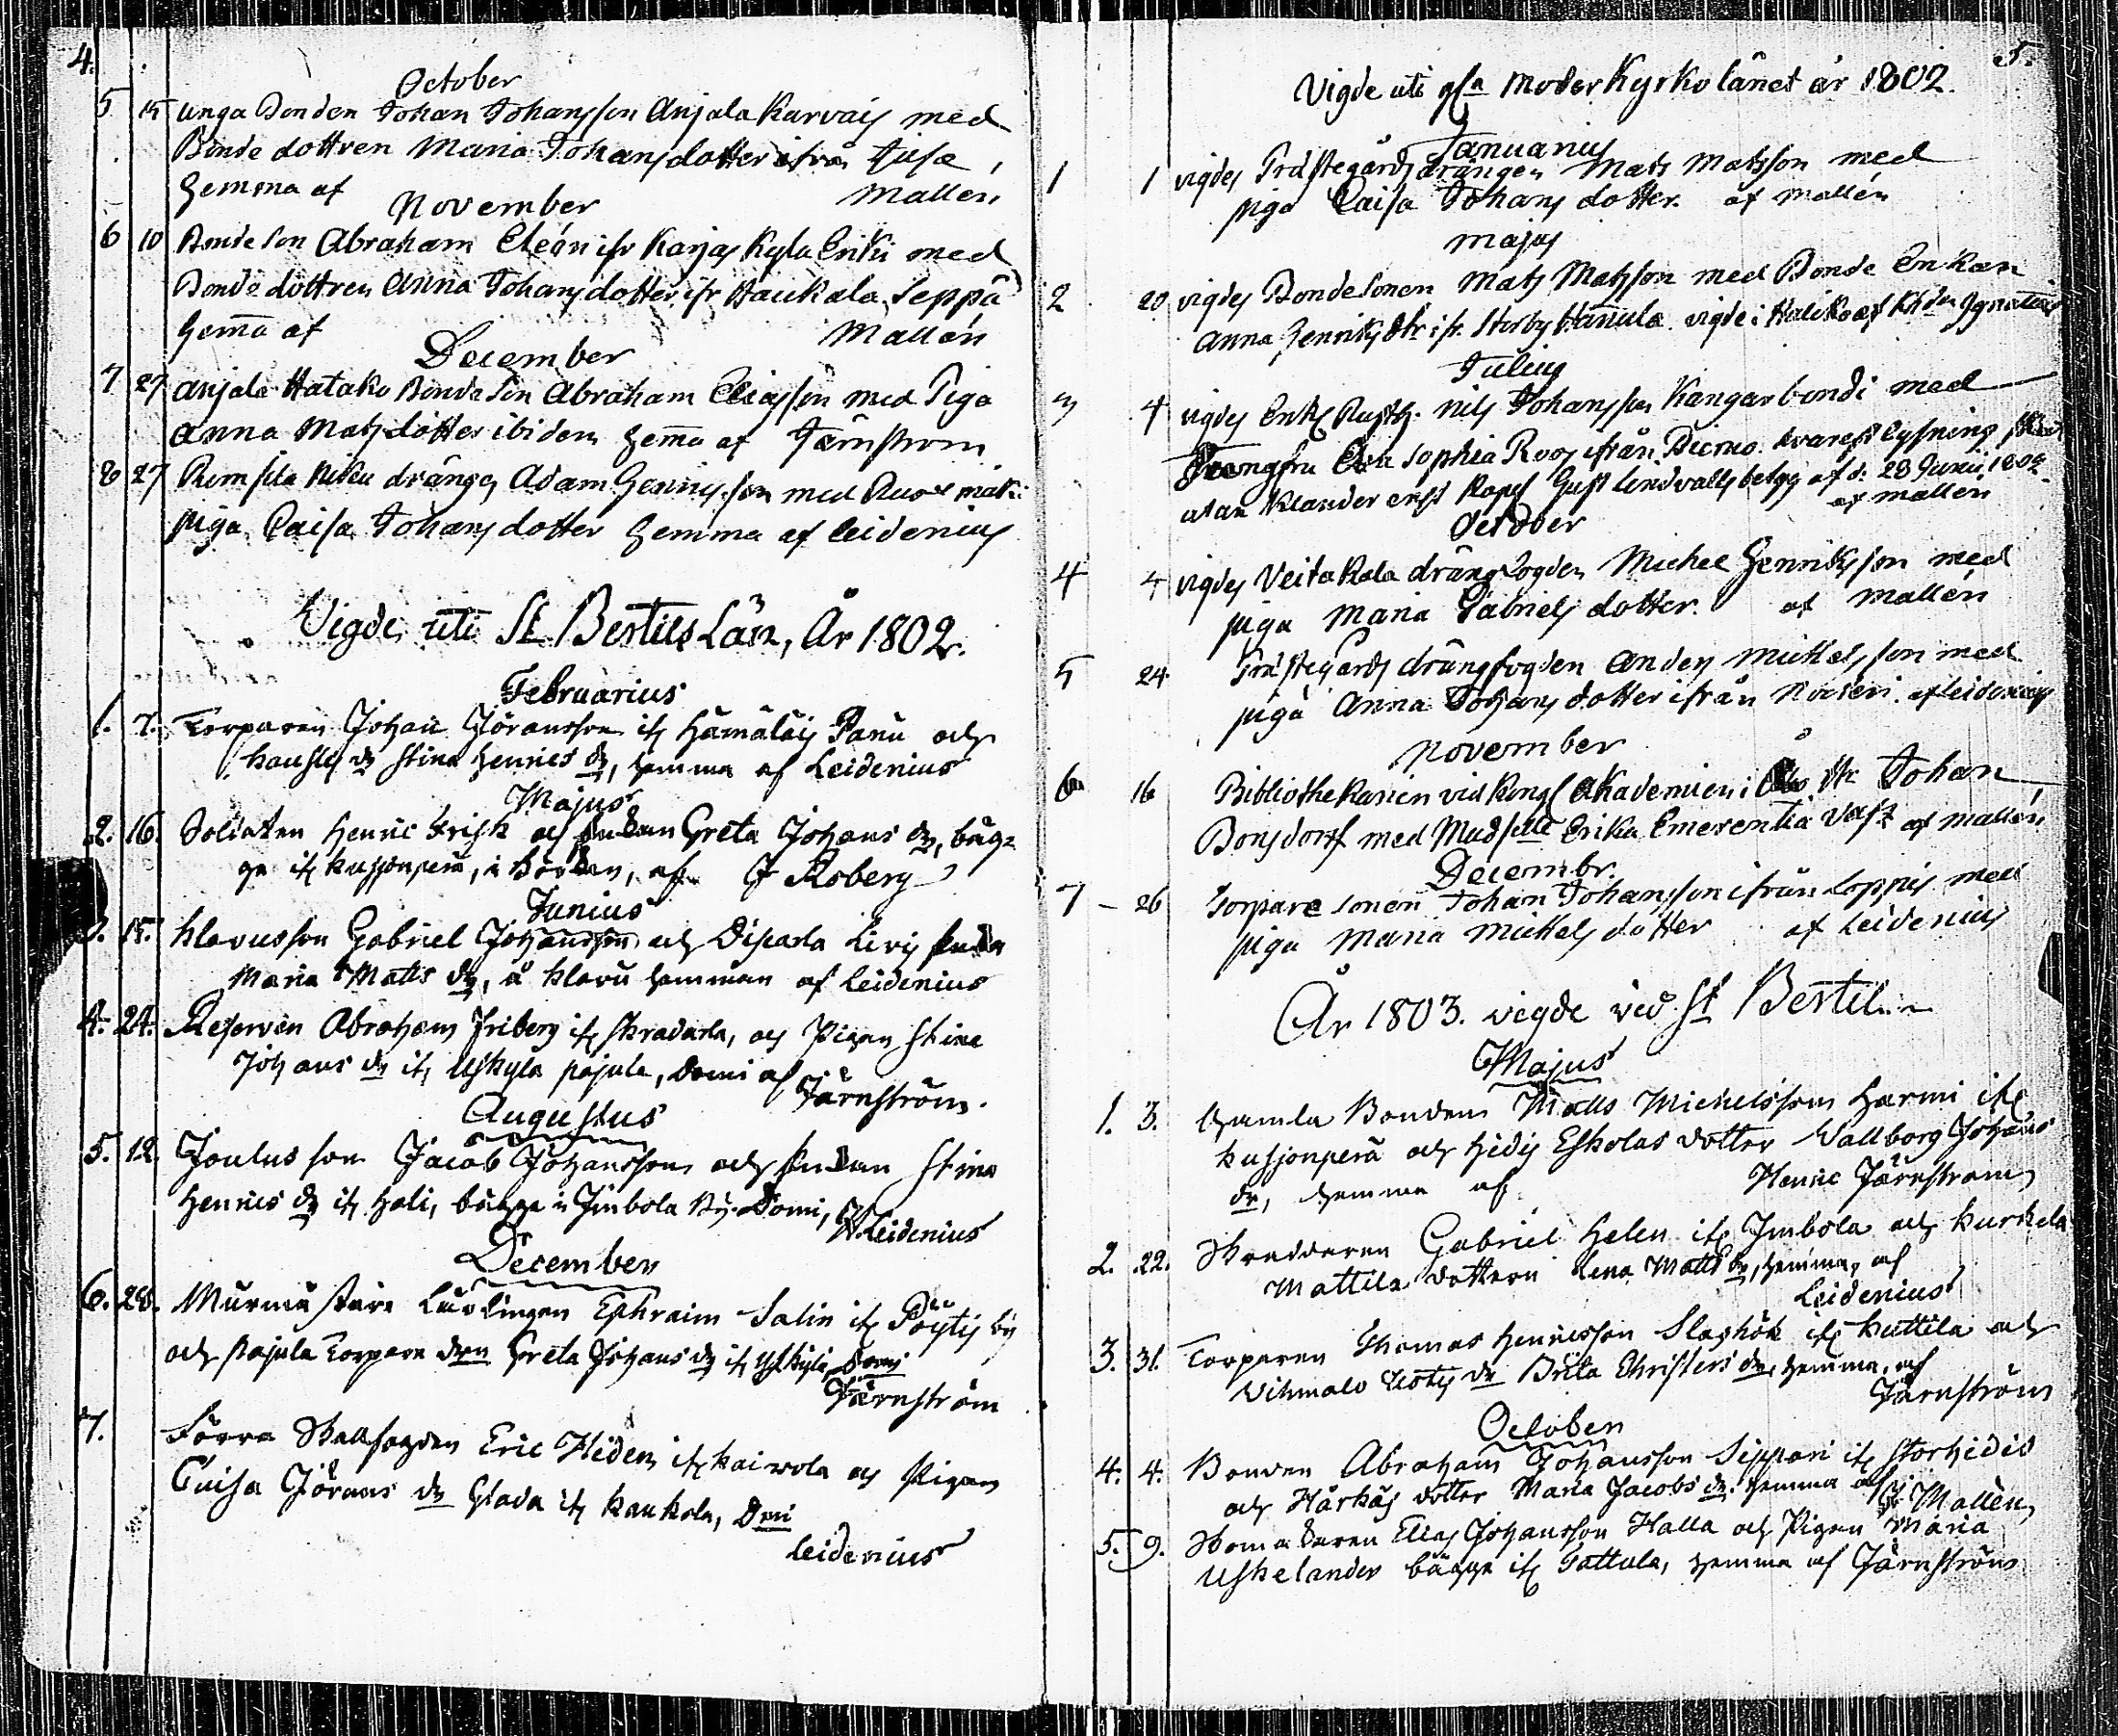 4.
October
5 15 unga Bonden Johan Johansson Anjala Karvais med
Bonde dottren Maria Johansdotter ifrån
hemma af Mallén
November
6 10 Bonde Son Abraham ifr Karjas Kyla Eriki med
Bonde dottren Anna Johansdotter ifr Haukala Seppä
hema af Mallén
December
7 27 Anjala Hatakko Bonde Son Abraham Eliasson med Piga
Anna Matsdotter ibidem hema af Järnström
8 27 drängen Adam med
piga Caisa Johansdotter hemma af Leidenius
Vigde uti St Bertils Län, År 1802.
Februarius
1. 7. Torparen Johan Jöransson if Hämäläis Panu och
dr Stina Henrics dr, hemma af Leidenius
Majus
2. 16. Soldaten Henric Frisk och Enkan Greta Johans dr, bäg-
ge if Kusjonperä, i af Roberg
Junius
3. 15. Klavusson Gabriel Johansson och Disarla
Maria Matts dr, å Klavu hemman af Leidenius
4. 24. Reserven Abraham Friberg if Skradarla, och Pigan Stina
Johans dr if Uskyla pajula, Domi af
Järnström.
Augustus
5. 12. Joulus son Jacob Johansson och Enkan Stina
Henrics dr if Hali, bägge i Inbola By. Domi,
Leidenius
December
6. 28. Murmästare Lärlingen Ephraim Salin if Pöytis by
och Pajula Torpare dren Greta Johans dr if Domi
Järnström
7. Förre Skallfogden Eric Hiden if Kaivola och Pigan
Caisa Jörans dr Glada if Kaukola, Domi
Leidenius
5.
Vigde uti Moder Kyrko länet år 1802.
Januarius
1 1 vigdes Prästegårdsdrängen Mats Matsson med
piga Caisa Johans dotter. af Mallén
Majus
2 20 vigdes Bondesonen Mats Matsson med Bonde Enkan
Anna Henriks dtr ifr. Storby Hannula. vigde i Haliko af Ignatius
Julius
3 4 vigdes Nils Johansson Kangar bondi med
Jungfru Eva Sophia Roos ifrån lysning
utan Klander enligt Gust Lindvalls betyg af d. 28 Junii 1802
af Mallén
October
4 4 vigdes Veitakala drängfogden Michel Henriksson med
piga Maria Gabriels dotter. af Mallén
5 24 Prästegårds drängfogden Anders Mickelsson med
piga Anna Johans dotter ifrån af Leidenius
November
6 16 Bibliothekarien vid Kongl Akademien i Åbo Johan
Bonsdorf med Madselle Erika Emerentia af Mallén
Decembr.
7 – 26 Torpare sonen Johan Johansson ifrån Loppis med
piga Maria Mickels dotter af Leidenius
År 1803. vigde vid St Bertil
Majus
1. 3. Gamla Bonden Matts Michelsson Harmi if
Kusjonperä och Hidis Eskolas dotter Wallborg Johans
dr, hemma af Henric Järnström
2. 22. Skraddaren Gabriel Helen if Inbola och Kurkela
Mattila dottern Lena Matts dr, hemma, af
Leidenius
3. 31. Torparen Thomas Henricsson Slaghök if Kuttila och
dr Brita Christers dr, hemma, af
Järnström
October
4. 4. Bonden Abraham Johansson Sippari if Storhidis
och Härkäs dotter Maria Jacobs dr. hemma af
Mallén
5. 9. Elias Johansson Halla och Pigan Maria
Uskelander bägge if Tattula, hemma af Järnström